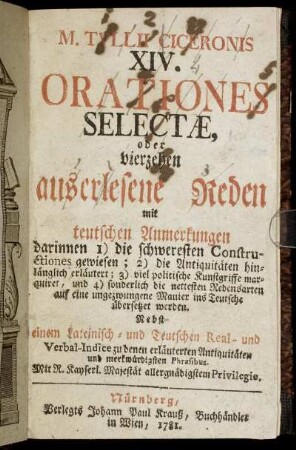 M. TVLLII CICERONIS
XIV.
ORATIONES
SELECTÆ,
oder
vierzehen
auserlesene Reden
mit
teutschen Anmerkungen
darinnen 1) die schweresten Constru-
ctiones gewiesen; 2) die Antiquitäten hin-
länglich erläutert; 3) viel politische Kunstgriffe mar-
quiret, und 4) sonderlich die nettesten Redensarten
auf eine ungezwungene Manier ins Teutsche
übersetzet werden.
Nebst
einem Lateinisch- und Teutschen Real- und
Verbal-Indice zu denen erläuterten Antiquitäten
und merkwürdigsten Phrasibus.
Mit R. Kayserl. Majestät allergnädigstem Privilegio.
Nürnberg,
Verlegts Johann Paul Krauß, Buchhändler
in Wien, 1781.